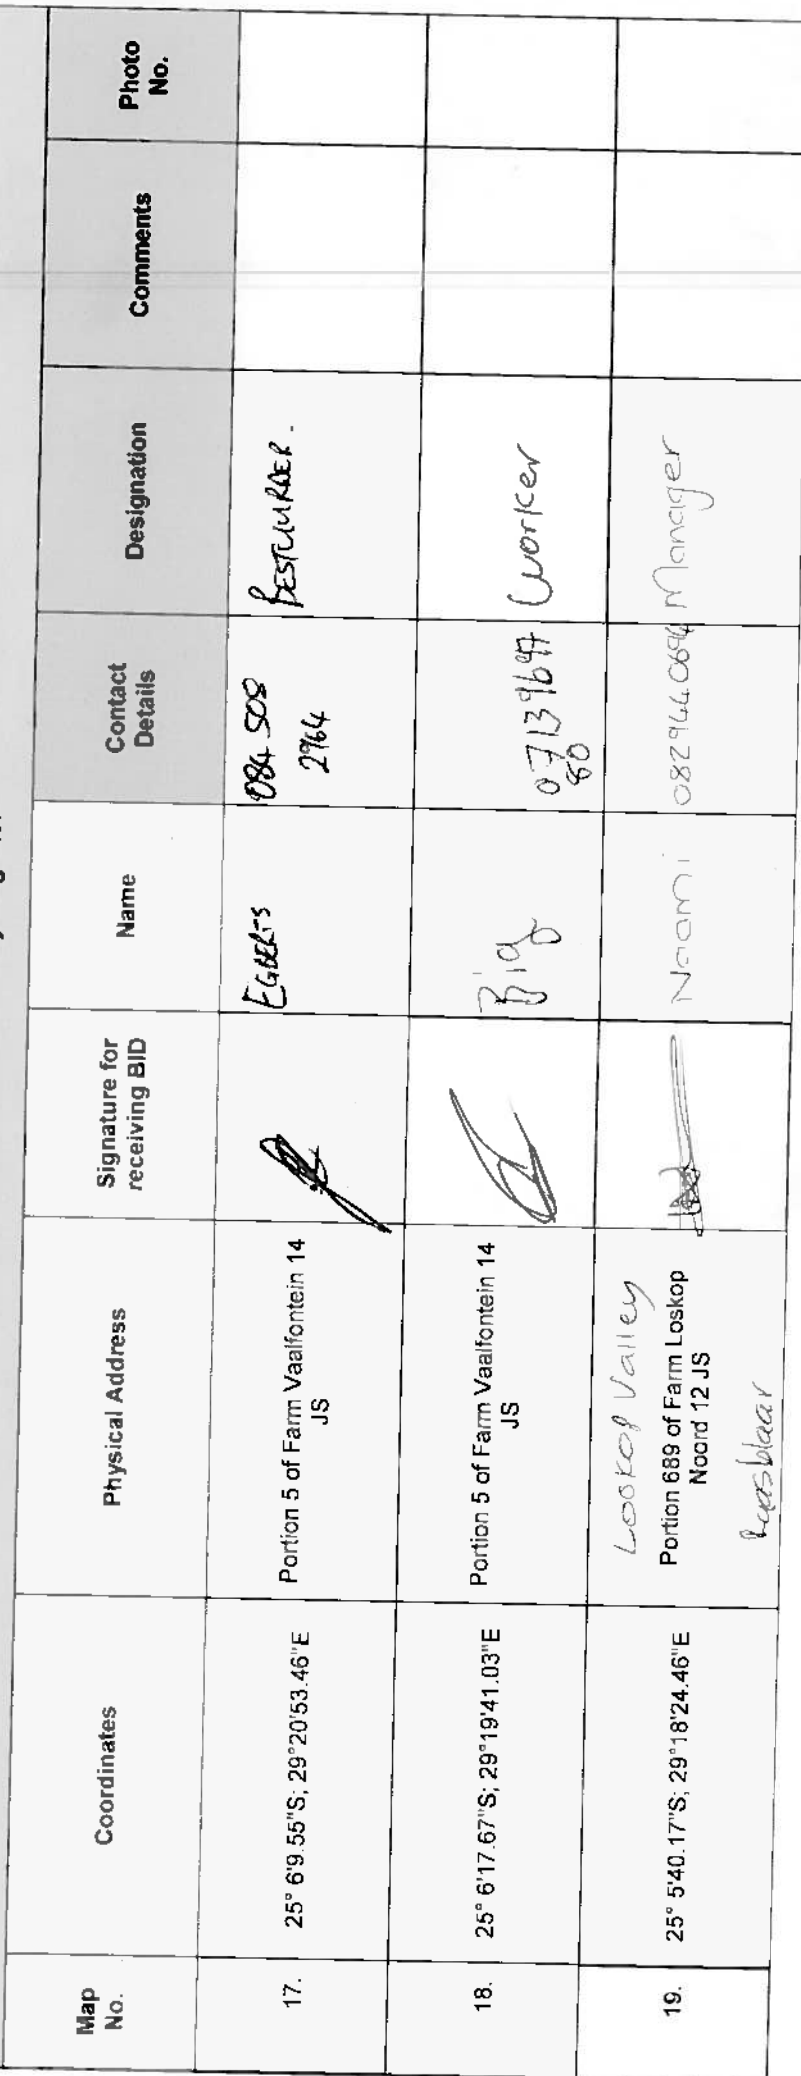 Map No.
Coordinates
Physical Address
Signature for receiving BID
Name
Contact Details
Designation
Comments
Photo No.
17.
25° 6'9.55"S; 29°20'53.46"E
Portion 5 of Farm Vaalfontein 14
JS
EGBERTS
084 508
2964
BESTUURDER.
18.
25° 6'17.67"S; 29°19'41.03"E
Portion 5 of Farm Vaalfontein 14
JS
07139697
80
Worker
19.
25° 5'40.17"S; 29°18'24.46"E
Looskop Valley
Portion 689 of Farm Loskop
Noord 12 JS
Naomi
Manager